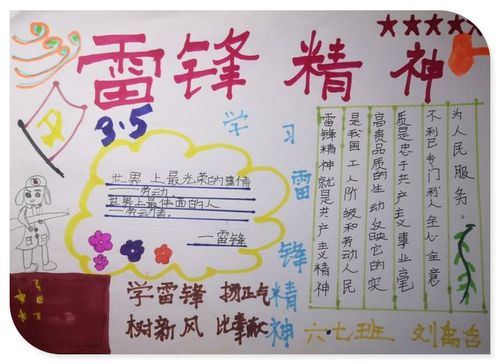 雷锋精神
3.5
学习雷锋精神
世界上最光荣的事情
—劳动。
世界上最体面的人
—劳动者。
—雷锋
雷锋精神就是共产主义精神
是我国工人阶级和劳动人民
高贵品质的生动反映它的实
质是忠于共产主义事业毫
不利己专门利人全心全意
为人民服务。
学雷锋 扬正气
树新风 比奉献
六七班 刘